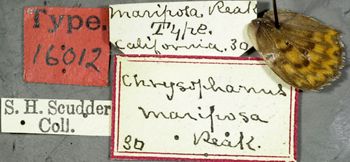 Type.
16012
S. H. Scudder
Coll.
mariposa Reak.
Type.
California. 30
Chrysophanus
mariposa
30 Reak.